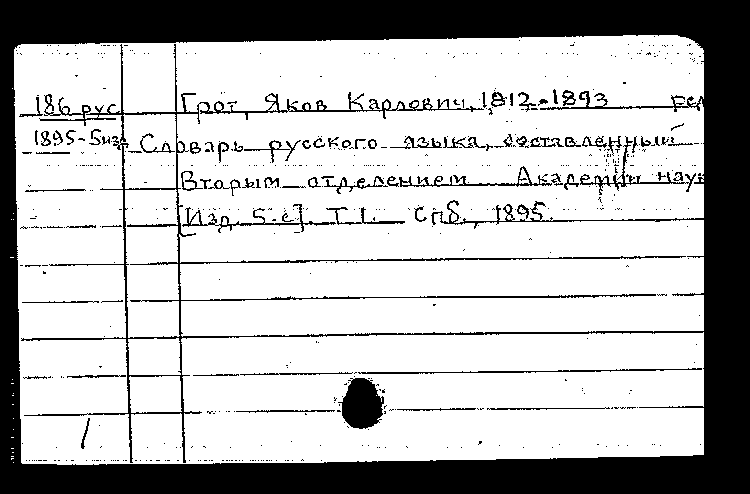 186 рус Грот, Яков Карлович, 1812-1893 ред
1895-5изд Словарь русского языка, составленный
Вторым отделением Академии наук
[Изд. 5-е]. Т. 1. Спб., 1895.
/